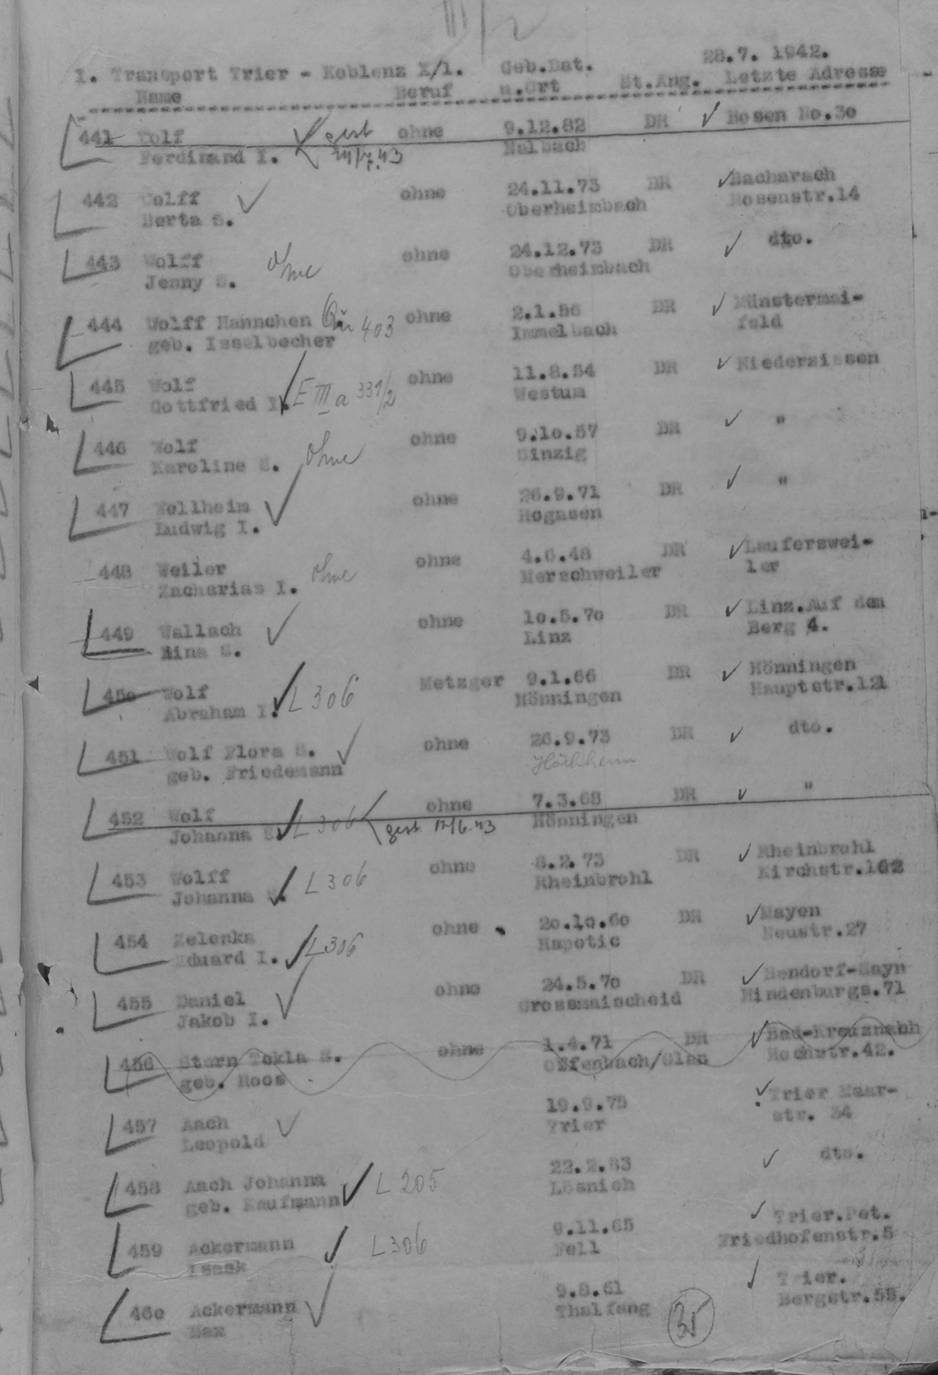 III/2
28.7. 1942.
1. Transport Trier - Koblenz X/1. Geb.Dat.
Name Beruf u.Ort St.Ang. Letzte Adresse
441 Wolf gest ohne 9.12.82 DR Bosen No.3o
Ferdinand I. Malbach
442 Wolff ohne 24.11.73 DR Bacharach
Berta S. Oberheimbach Rosenstr.14
443 Wolff ohne ohne 24.12.73 DR dto.
Jenny S. Oberheimbach
444 Wolff Hannchen 403 ohne 2.1.56 DR Münstermai-
geb. Isselbacher Immelbach feld
445 Wolf E III a 339/2 ohne 11.8.54 DR Niederzissen
Gottfried I. Westum
446 Wolf ohne ohne 9.1o.57 DR "
Karoline S. Sinzig
447 Wollheim ohne 26.9.71 DR "
Ludwig I. Rogasen
448 Weiler ohne ohne 4.6.48 DR Lauferswei-
Zacharias I. Merschweiler ler
449 Wallach ohne 1o.5.7o DR Linz.Auf dem
Mina S. Linz Berg 4.
45o Wolf L 306 Metzger 9.1.66 DR Hönningen
Abraham I. Hönningen Hauptstr.121
451 Wolf Flora S. ohne 26.9.73 DR dto.
geb. Friedemann
452 Wolf L 306 ohne 7.3.68 DR "
Johanna S. gest 12/6.43 Hönningen
453 Wolff L 306 ohne 8.2.73 DR Rheinbrohl
Johanna S. Rheinbrohl Kirchstr.162
454 Zelenka L306 ohne 2o.1o.6o DR Mayen
Eduard I. Kapotic Neustr.27
455 Daniel ohne 24.5.7o DR Bendorf-Sayn
Jakob I. Grossmaischeid Hindenburgs.71
456 Stern Tekla S. ohne 1.4.71 DR Bad-Kreuznach
geb. Roos Offenbach/Glan Hochstr.42.
457 Aach 19.9.75 Trier Maar-
Leopold Trier str. 34
458 Aach Johanna L 205 22.2.83 dto.
geb. Kaufmann Lösnich
459 Ackermann L306 9.11.65 Trier.Pet.
Isaak Fell Friedhofenstr.5
46o Ackermann 9.8.61 Trier.
Max Thalfang Bergstr.55.
35